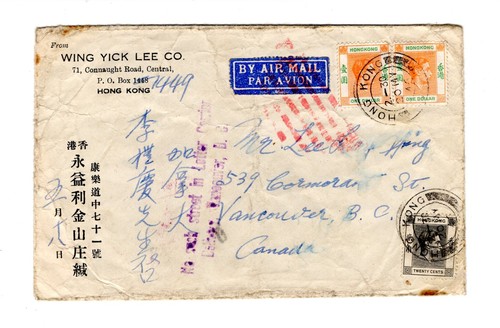 From
WING YICK LEE CO.
71, Connaught Road, Central,
P. O. Box 1448
HONG KONG
1449
BY AIR MAIL
PAR AVION
HONGKONG
HONGKONG
ONE DOLLAR
ONE DOLLAR
HONG KONG
Mr. Lee
539 Cormorant St.
Vancouver, B. C.
Canada
加拿大
李
慶先生啓
No such street in
Vancouver, B. C.
HONG KONG
HONGKONG
TWENTY CENTS
康樂道中七十一號
香港
永益利金山庄緘
五月
日